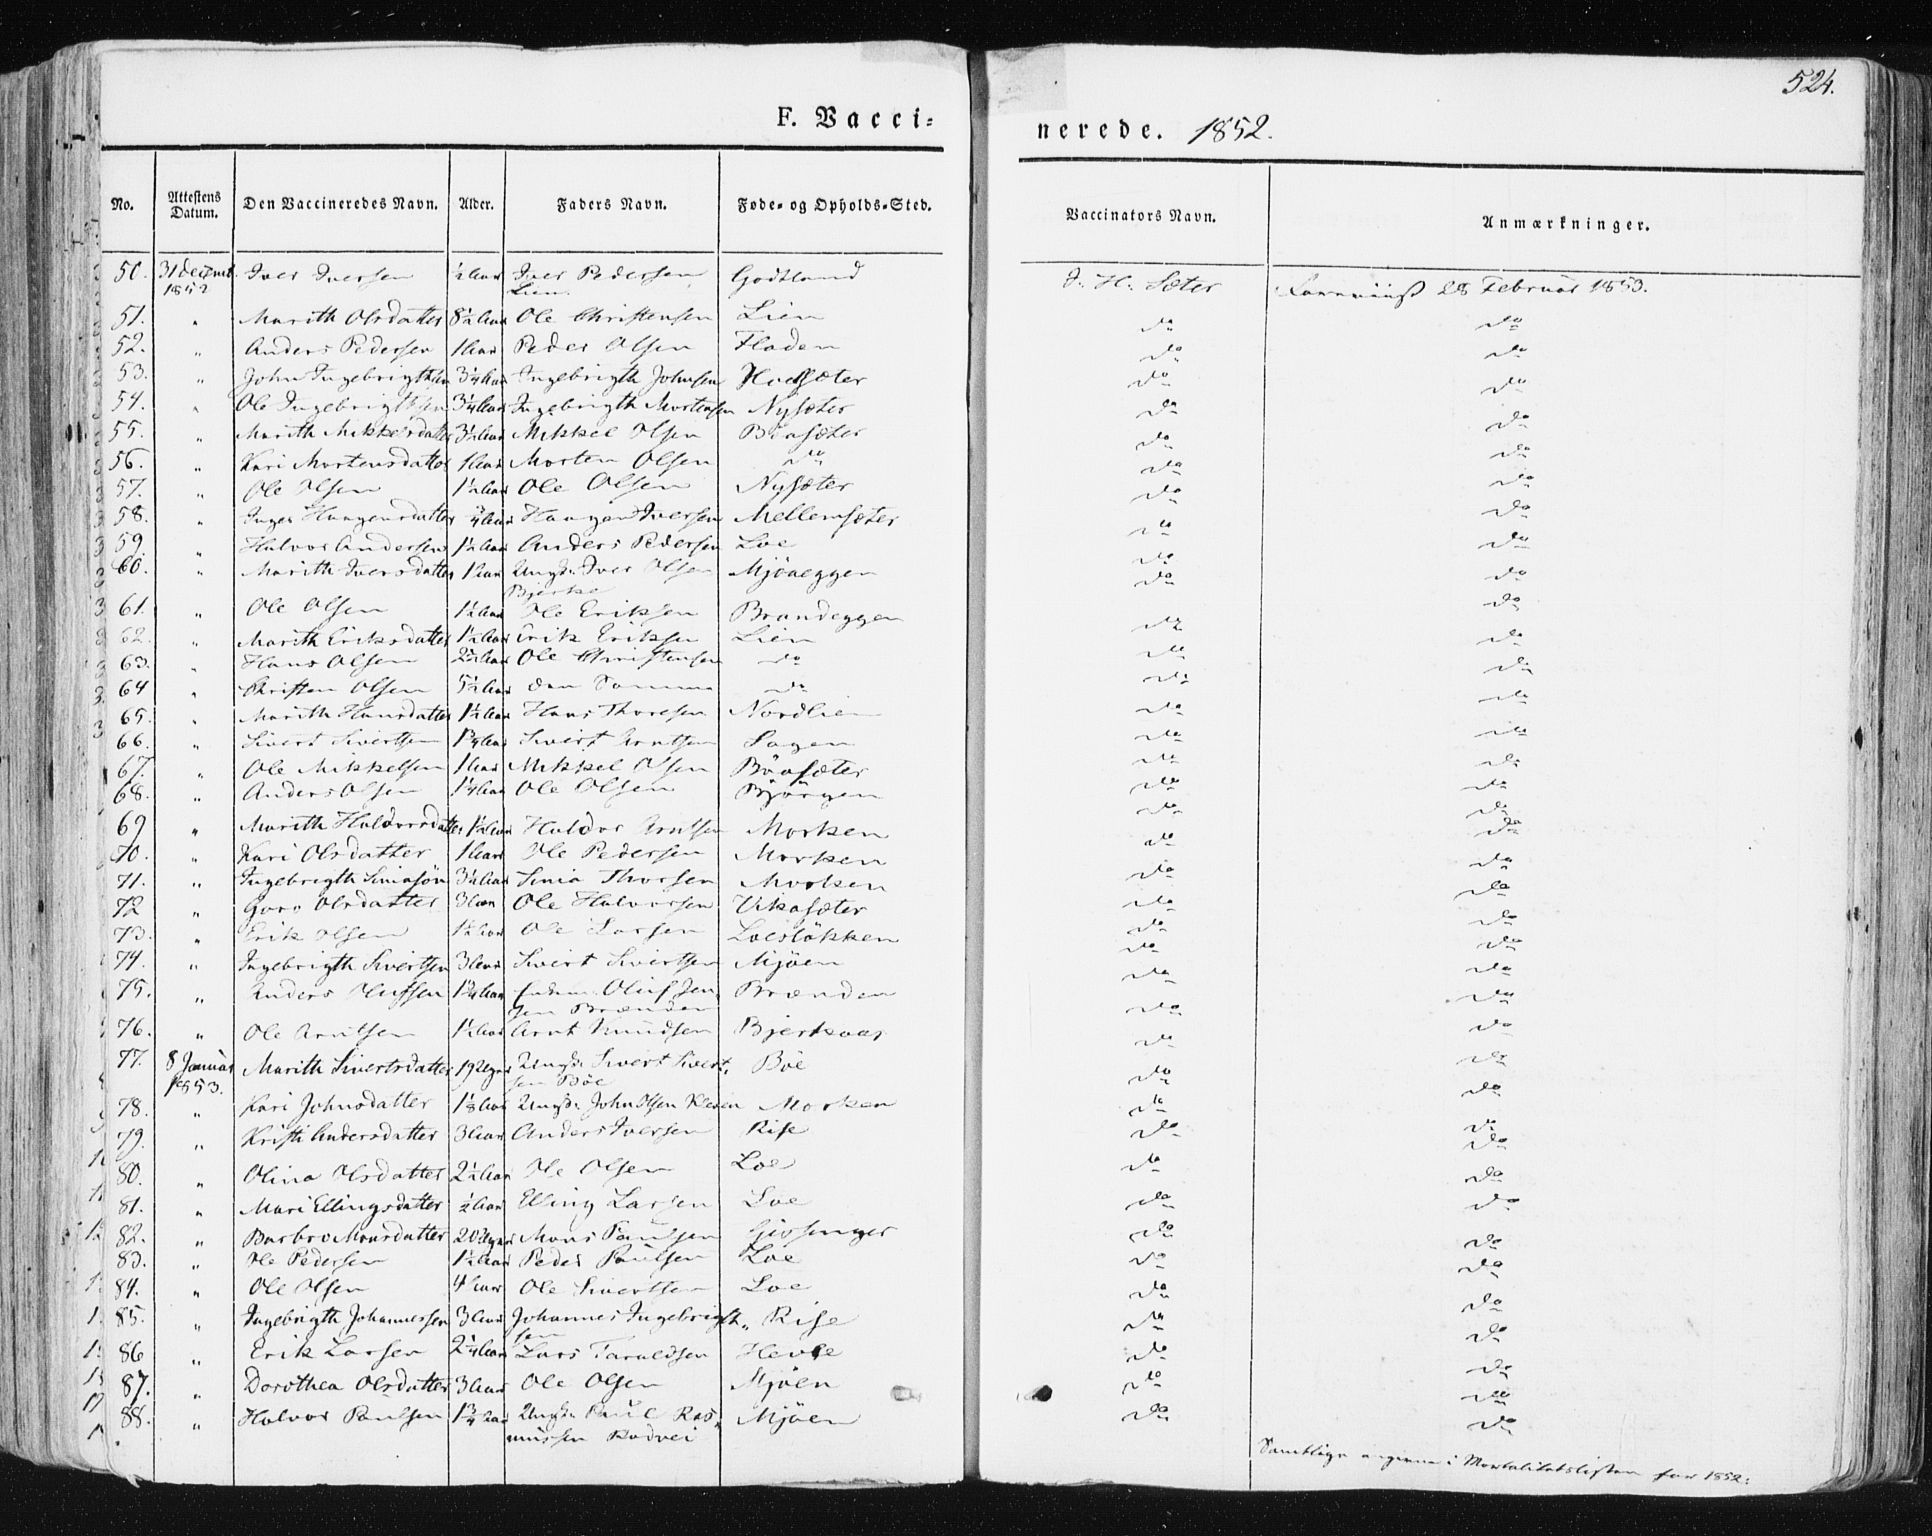 524.
F. Vacci-
nerede. 1852.
No. Attestens Datum. Den Vaccineredes Navn. Alder. Faders Navn. Føde- og Opholds-Sted. Vaccinators Navn. Anmærkninger.
50. 31 Decembr. 1852 Iver Iversen ½ Aar Iver Pedersen Lien Godtland J. H. Sæter 28 Februar 1853.
51. " Marith Olsdatter 8½ Aar Ole Christensen Lien do do
52. " Anders Pedersen 1 Aar Peder Olsen Floden do do
53. " John Ingebrigthsen 3¼ Aar Ingebrigth Johnsen Hadsæter do do
54. " Ole Ingebrigthsen 3¼ Aar Ingebrigth Mortensen Nysæter do do
55. " Marith Mikkelsdatter 3½ Aar Mikkel Olsen Böasæter do do
56. " Kari Mortensdatter 1 Aar Morten Olsen do do do
57. " Ole Olsen 1½ Aar Ole Olsen Nysæter do do
58. " Inger Haagensdatter ¾ Aar Haagen Iversen Mellemsæter do do
59. " Halvor Andersen 1½ Aar Anders Pedersen Loe do do
60. " Marith Iversdatter 1 Aar Ungk. Iver Olsen Bjerke Mjöaeggen do do
61. " Ole Olsen 1½ Aar Ole Eriksen Brandeggen do do
62. " Marith Eriksdatter 1½ Aar Erik Eriksen Lien do do
63. " Hans Olsen 2½ Aar Ole Christensen do do do
64 " Christen Olsen 5½ Aar den Samme do do do
65. " Marith Hansdatter 1½ Aar Hans Thoresen Nordlien do do
66. " Sivert Sivertsen 1¾ Aar Sivert Arntsen Sagen do do
67. " Ole Mikkelsen 1 Aar Mikkel Olsen Böasæter do do
68. " Anders Olsen 1¼ Aar Ole Olsen Björgen do do
69 " Marith Haldorsdatter 1½ Aar Haldor Arntsen Morken do do
70. " Kari Olsdatter 1 Aar Ole Pedersen Morken do do
71. " Ingebrigth 3¼ Aar Thorsen Morken do do
72 " Goro Olsdatter 3 Aar Ole Halvorsen Vikasæter do do
73. " Erik Olsen 1½ Aar Ole Larsen Loeslökken do do
74. " Ingebrigth Sivertsen 3 Aar Sivert Sivertsen Mjöen do do
75. " Anders Olufsen 1¾ Aar Oluf Jensen Brænden Brænden do do
76. " Ole Arntsen 1½ Aar Arnt Knudsen Bjerkaas do do
77. 8 Januar 1853. Marith Sivertsdatter 19 Uger Ungk. Sivert Sivertsen Böe Böe do do
78. " Kari Johnsdatter 1⅛ Aar Ungk. John Olsen Kleven Morken do do
79. " Kristi Andersdatter 3 Aar Anders Iversen Rise do do
80. " Olina Olsdatter 2½ Aar Ole Olsen Loe do do
81. " Mari Ellingsdatter ½ Aar Elling Larsen Loe do do
82. " Barbro Monsdatter 20 Uger Mons Paulsen Gisinger do do
83. " Ole Pedersen 1½ Aar Peder Paulsen Loe do do
84. " Ole Olsen 4 Aar Ole Sivertsen Loe do do
85. " Ingebrigth Johannessen 3 Aar Johannes Ingebrigthsen Rise do do
86 " Erik Larsen 2¼ Aar Lars Taraldsen Hevle do do
87. " Dorothea Olsdatter 3 Aar Ole Olsen Mjöen do do
88. " Halvor Paulsen 1¾ Aar Ungk. Paul Rasmussen Rodvei Mjöen do do
Samtlige angivne i Mortalitetslisten for 1852.